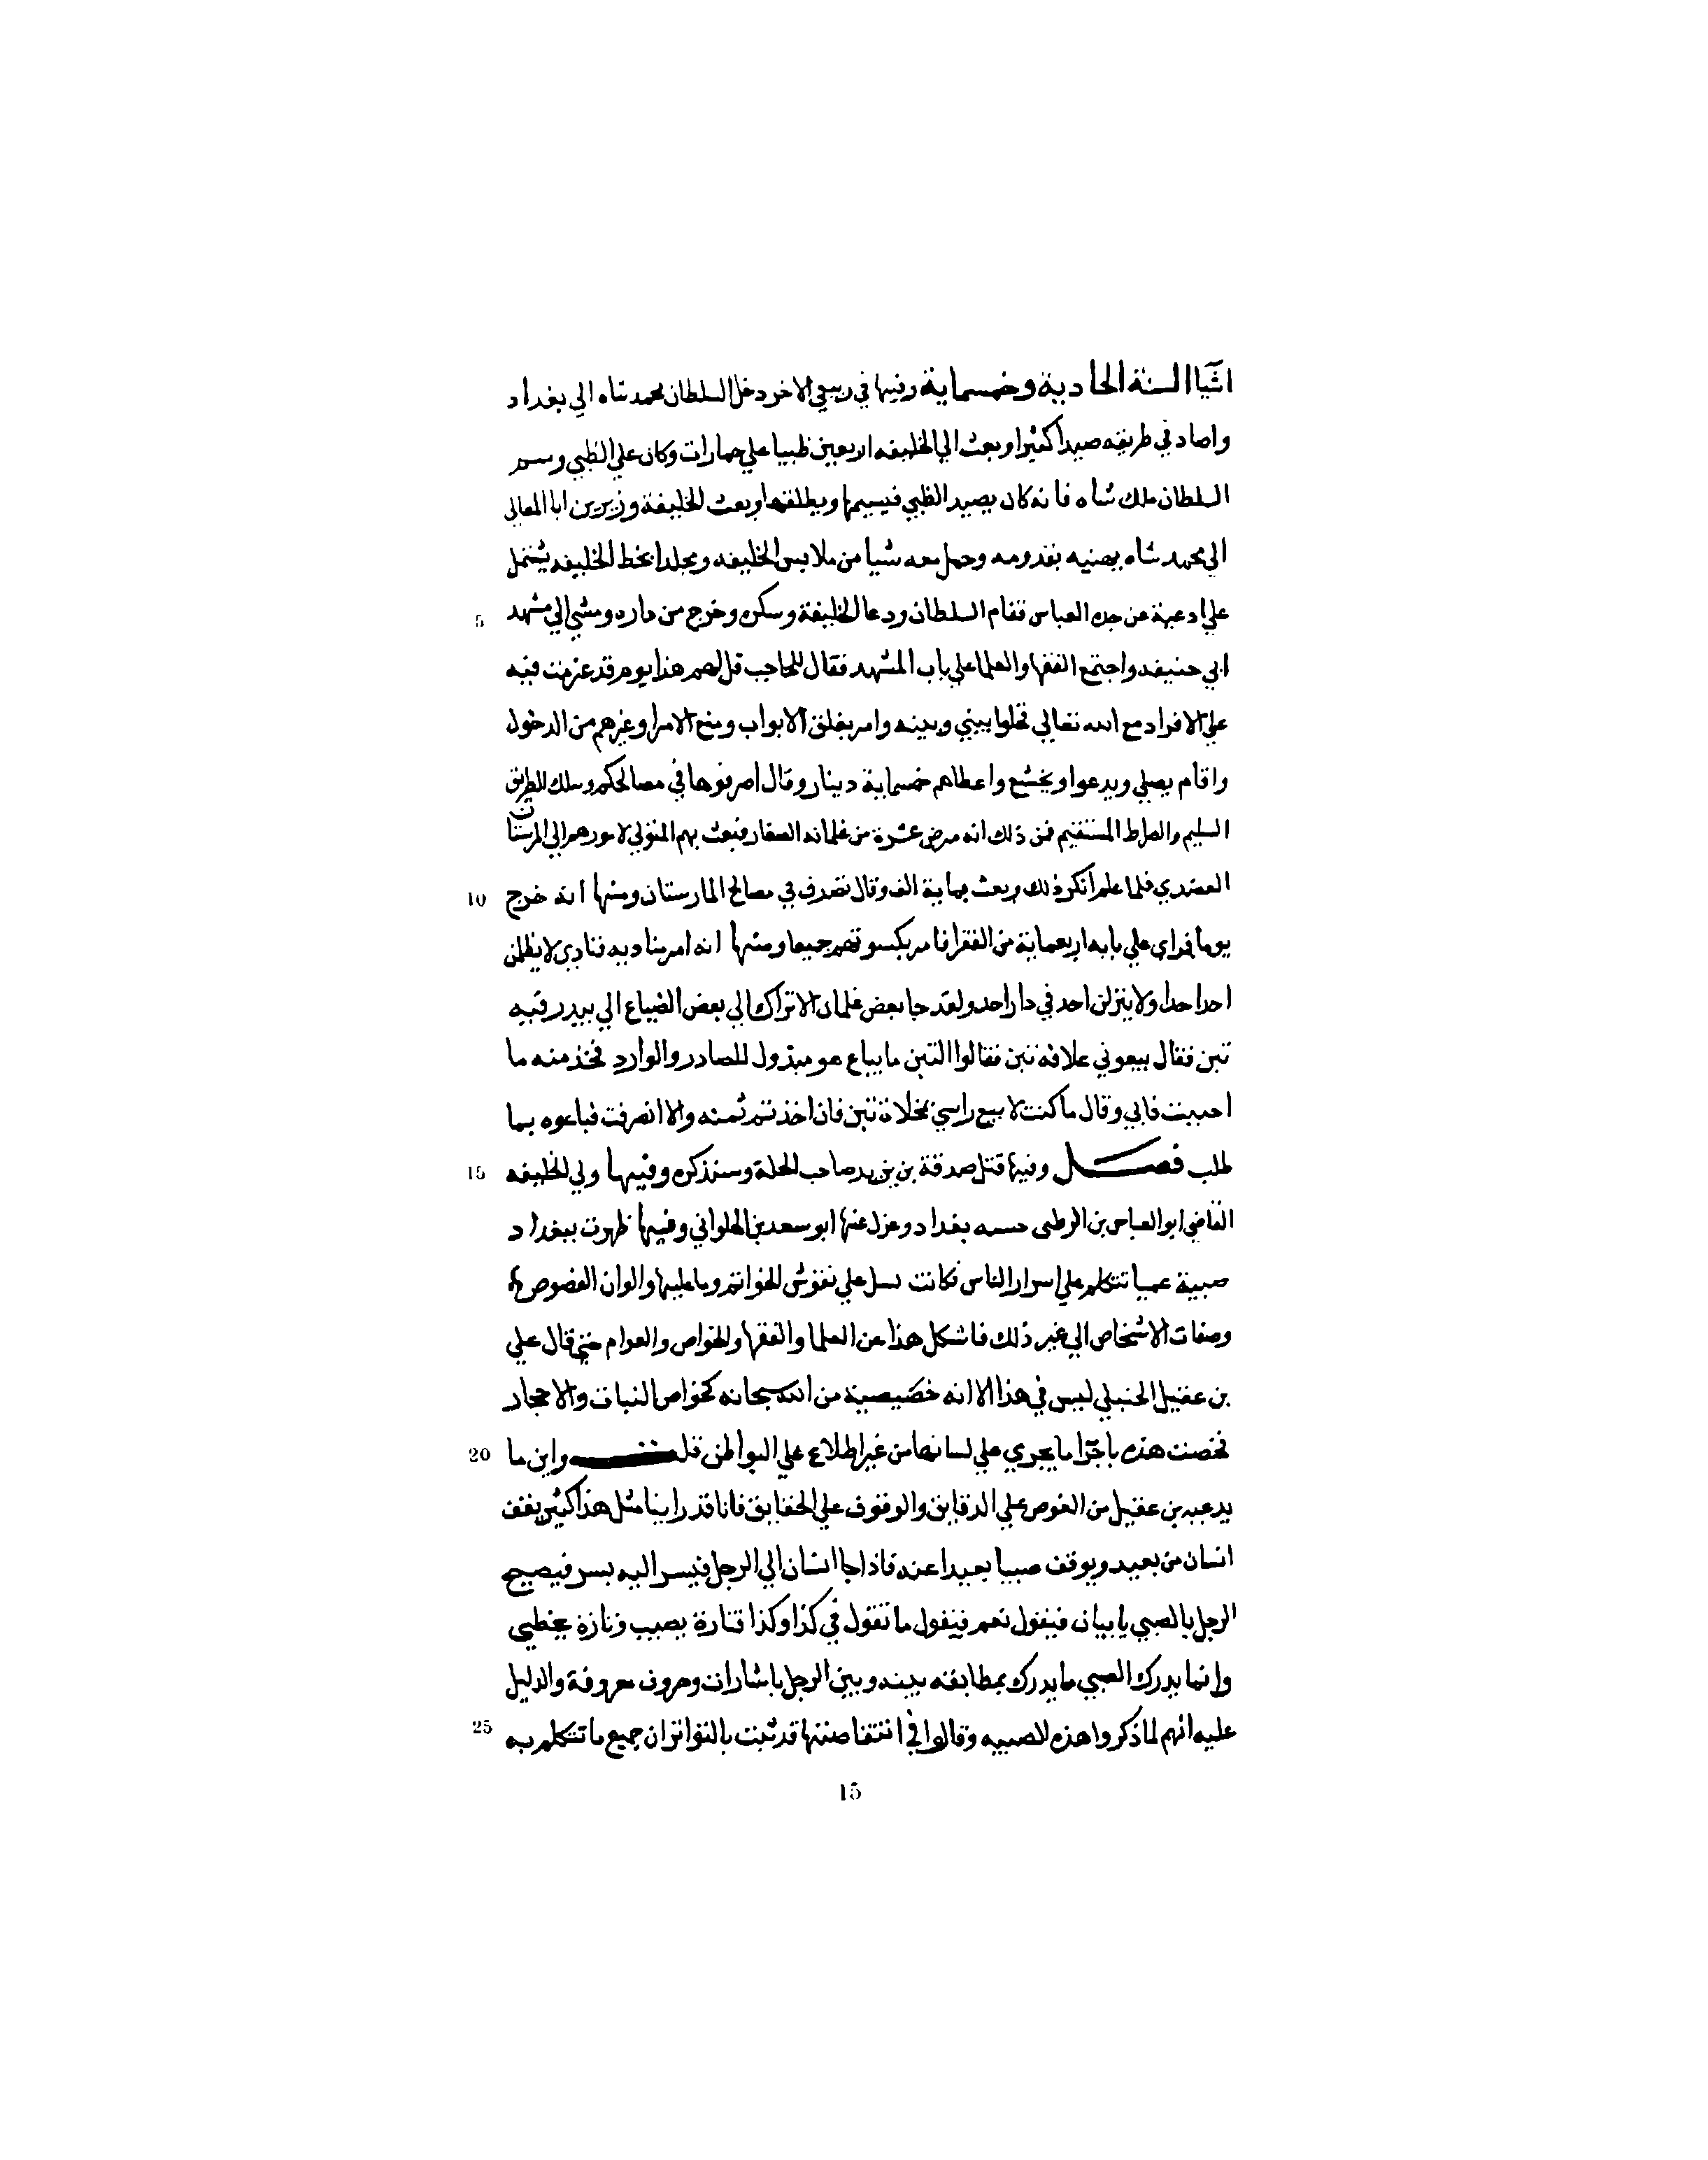 اشيا السنة الحادية وخمسماية وفيها في ربيع الاخر دخل السلطان محمد شاه الي بغداد
واصاد في طريقه صيدا كثيرا وبعث الي الخليفه اربعين ظبيا علي جمازات وكان علي الظبي وسم
السلطان ملك شاه فانه كان يصيد الظبي فيسمها ويطلقها وبعث الخليفة وزيره ابا المعالي
الي محمد شاه يهنيه بقدومه وحمل معه شيا من ملابس الخليفه ومجلدا بخط الخليفه يشتمل
5 علي ادعية عن جده العباس فقام السلطان ودعا للخليفة وشكره وخرج من داره ومشي الي مشهد
ابي حنيفه واجتمع الفقها والعلما علي باب المشهد فقال للحاجب قل لهم هذا يوم قد عزمت فيه
علي الافراد مع الله تعالي فخلوا بيني وبينه وامر بغلق الابواب ومنع الامرا وغيرهم من الدخول
واقام يصلي ويدعوا ويخشع واعطاهم خمسماية دينار وقال اصرفوها في مصالحكم وسلك الطريق
السليم والصراط المستقيم فمن ذلك انه مرض عشرة من غلمانه الصغار فبعث بهم المتولي لامورهم الي المرستان
10 العضدي فلما علم انكر ذلك وبعث بماية الف وقال تصرف في مصالح المارستان ومنها انه خرج
يوما فراي علي بابه اربعماية من الفقرا فامر بكسوتهم جميعا ومنها انه امر مناديه فنادي لا يظلمن
احد احدا ولا ينزلن احد في دار احد ولقد جا بعض غلمان الاتراك الي بعض الضياع الي بيدر فيه
تبن فقال بيعوني علاقة تبن فقالوا التبن ما يباع هو مبذول للصادر والوارد فخذ منه ما
احببت فابي وقال ما كنت لابيع راسي بمخلاة تبن فان اخذتم ثمنه والا انصرفت فباعوه بما
15 طلب فصل وفيها قتل صدقة بن مزيد صاحب الحلة وسنذكره وفيها ولي الخليفه
القاضي ابو العباس بن الرطبي حسبه بغداد وعزل عنها ابو سعد بن الحلواني وفيها ظهرت ببغداد
صبية عميا تتكلم علي اسرار الناس فكانت تسل علي نقوش الخواتم وما عليها والوان الفصوص
وصفات الاشخاص الي غير ذلك فاشكل هذا عن العلما والفقها والخواص والعوام حتي قال علي
بن عقيل الحنبلي ليس في هذا الا انه خصيصية من الله سبحانه كخواص النبات والاحجار
20 فخصت هذه باجرا ما يجري علي لسانها من غير اطلاع علي البواطن قلت واين ما
يدعيه بن عقيل من الغوص علي الدقايق والوقوف علي الحقايق فانا قد راينا مثل هذا كثير يقف
انسان من بعيد ويوقف صبيا بعيدا عنه فاذا جا انسان الي الرجل فيسر اليه بسر فيصيح
الرجل بالصبي يا بيان فيقول نعم فيقول ما تقول في كذا وكذا فتارة يصيب وتارة يخطي
وانما يدرك الصبي ما يدرك بمطابقه بينه وبين الرجل باشارات وحروف معروفة والدليل
25 عليه انهم لما ذكروا هذه الصبيه وقالوا في انتقاصتها قد ثبت بالتواتر ان جميع ما تتكلم به
15